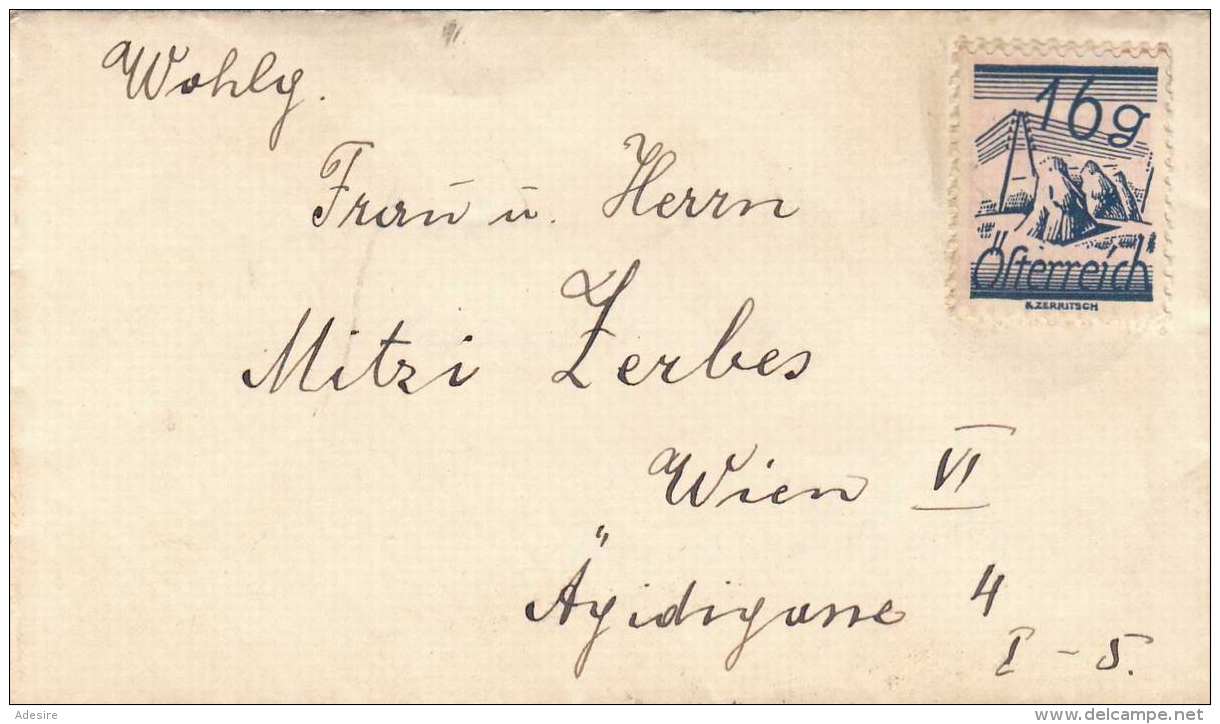 Wohlg.
16g
Österreich
K.ZERRITSCH
Frau u. Herrn
Mitzi Zerbes
Wien VI
Ägidigasse 4
I - 5.
Adesire
www.delcampe.net